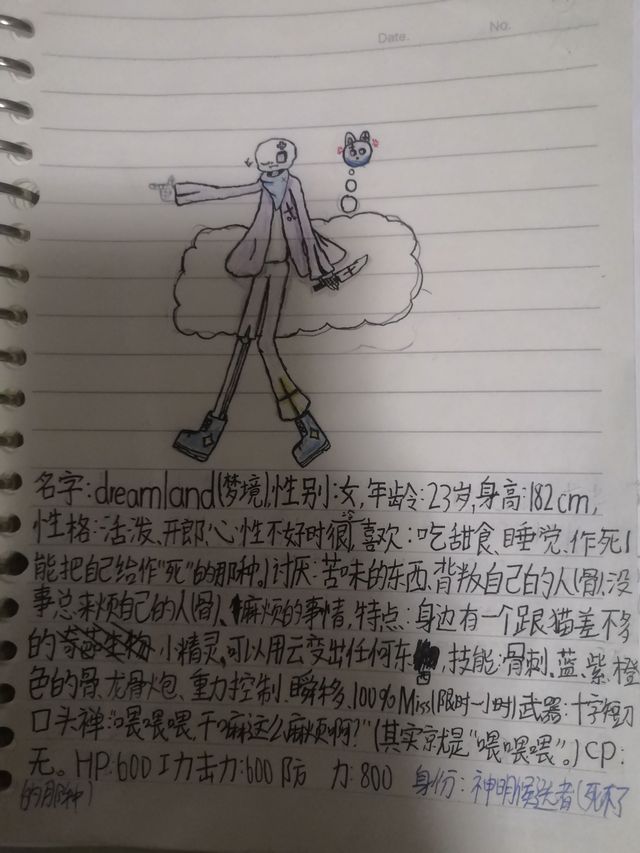 Date.
No.
名字:dreamland(梦境),性别:女,年龄:23岁,身高:182cm,
性格:活泼、开郎、心性不好时很冷,喜欢:吃甜食、睡觉、作死(
能把自己给作"死"的那种。)讨厌:苦味的东西、背叛自己的人(骨)、没
事总来烦自己的人(骨)、麻烦的事情,特点:身边有一个跟猫差不多
的小精灵,可以用云变出任何东西,技能:骨刺、蓝、紫、橙
色的骨、龙骨炮、重力控制、瞬移、100%Miss(限时一小时)武器:十字短刀
口头禅:"喂喂喂,干嘛这么麻烦啊?"(其实就是"喂喂喂"。)CP:
无。HP:600 工力击力:600 防 力:800 身份:神明候选者(死不了
的那种)